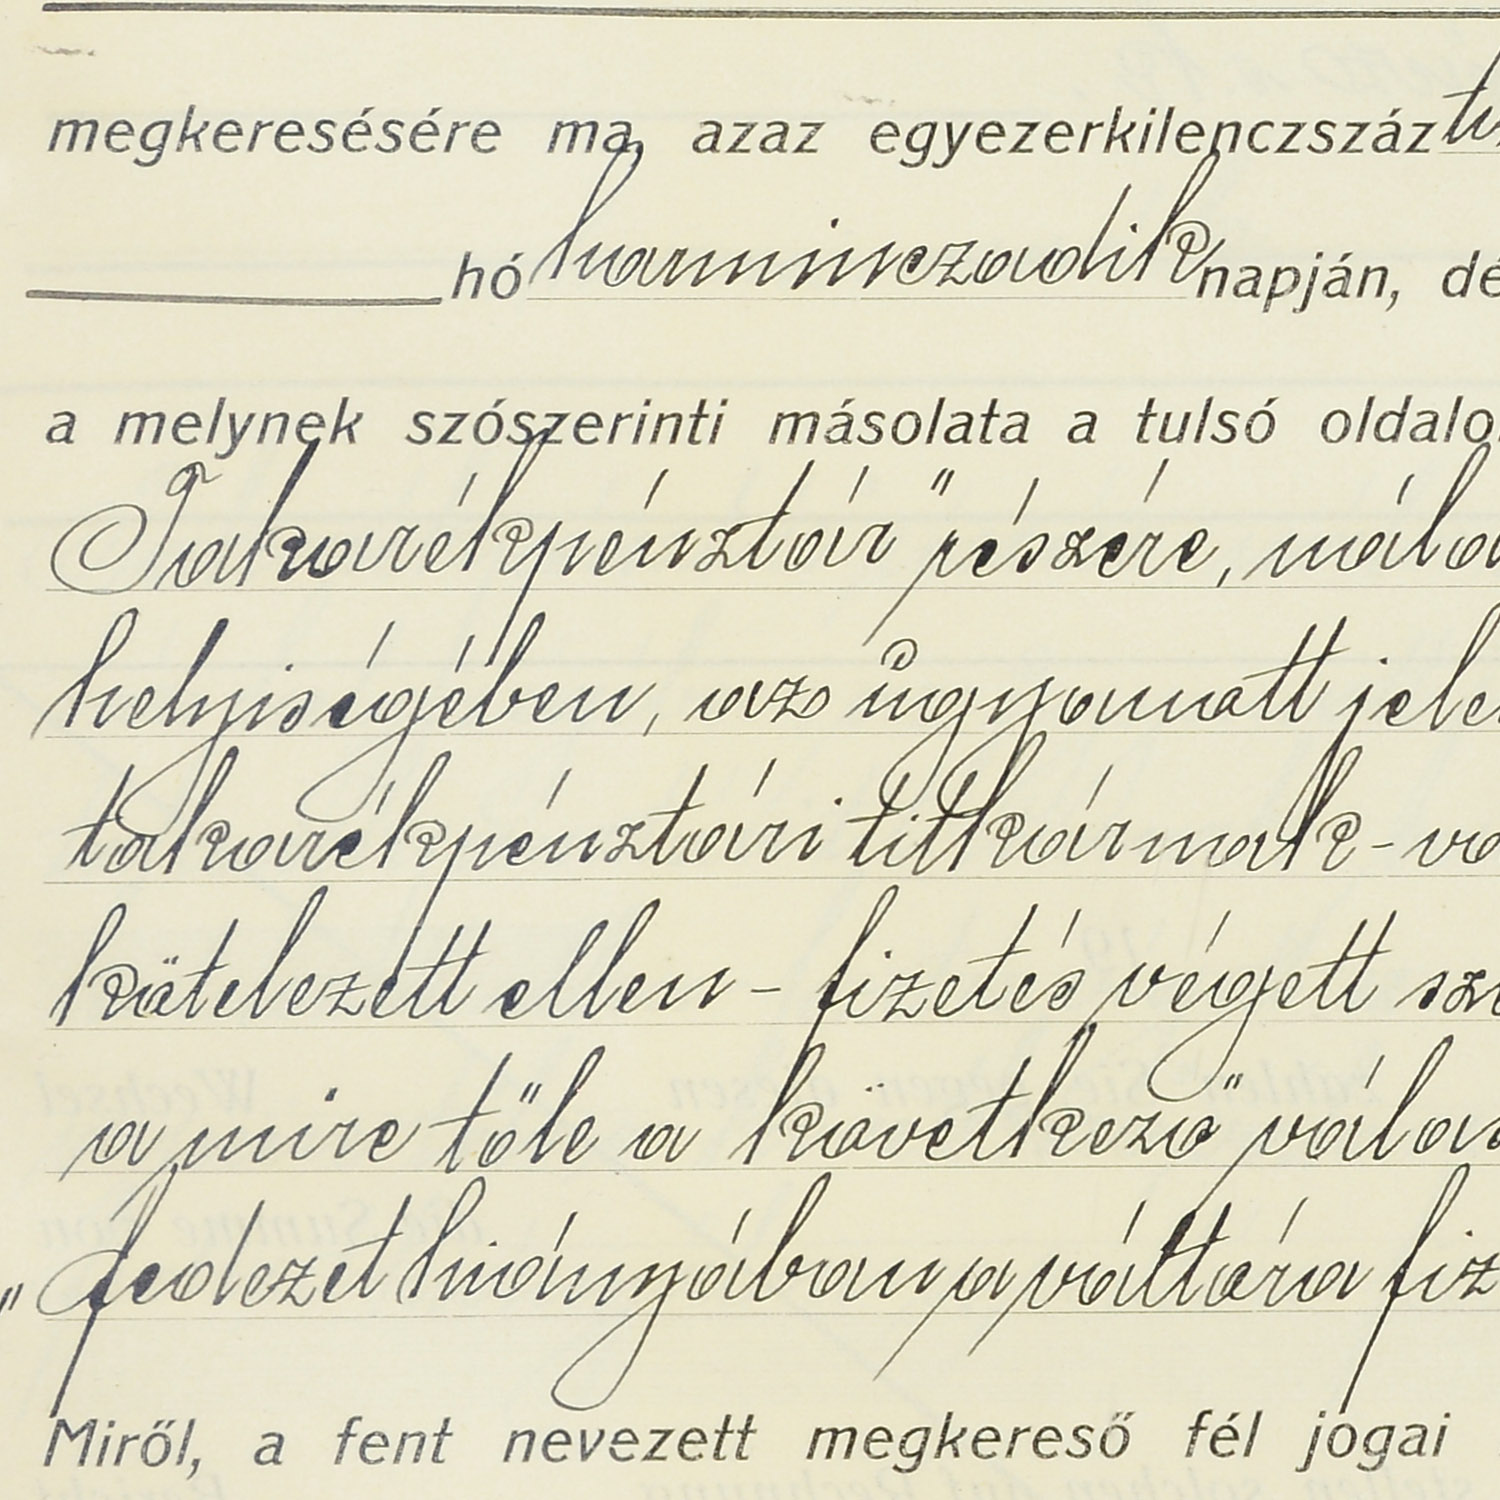 megkeresésére ma, azaz egyezerkilenczszáz
hó harminczadik napján, dé
a melynek szószerinti másolata a tulsó oldalo
Takarékpénztár" részére, nála
helyiségében, az ugyanatt jele
takarékpénztári titkárnak - va
kötelezett ellen - fizetés végett sz
a mire tőle a következő vála
"fedezet hiányában a váltóra fiz
Miről, a fent nevezett megkereső fél jogai